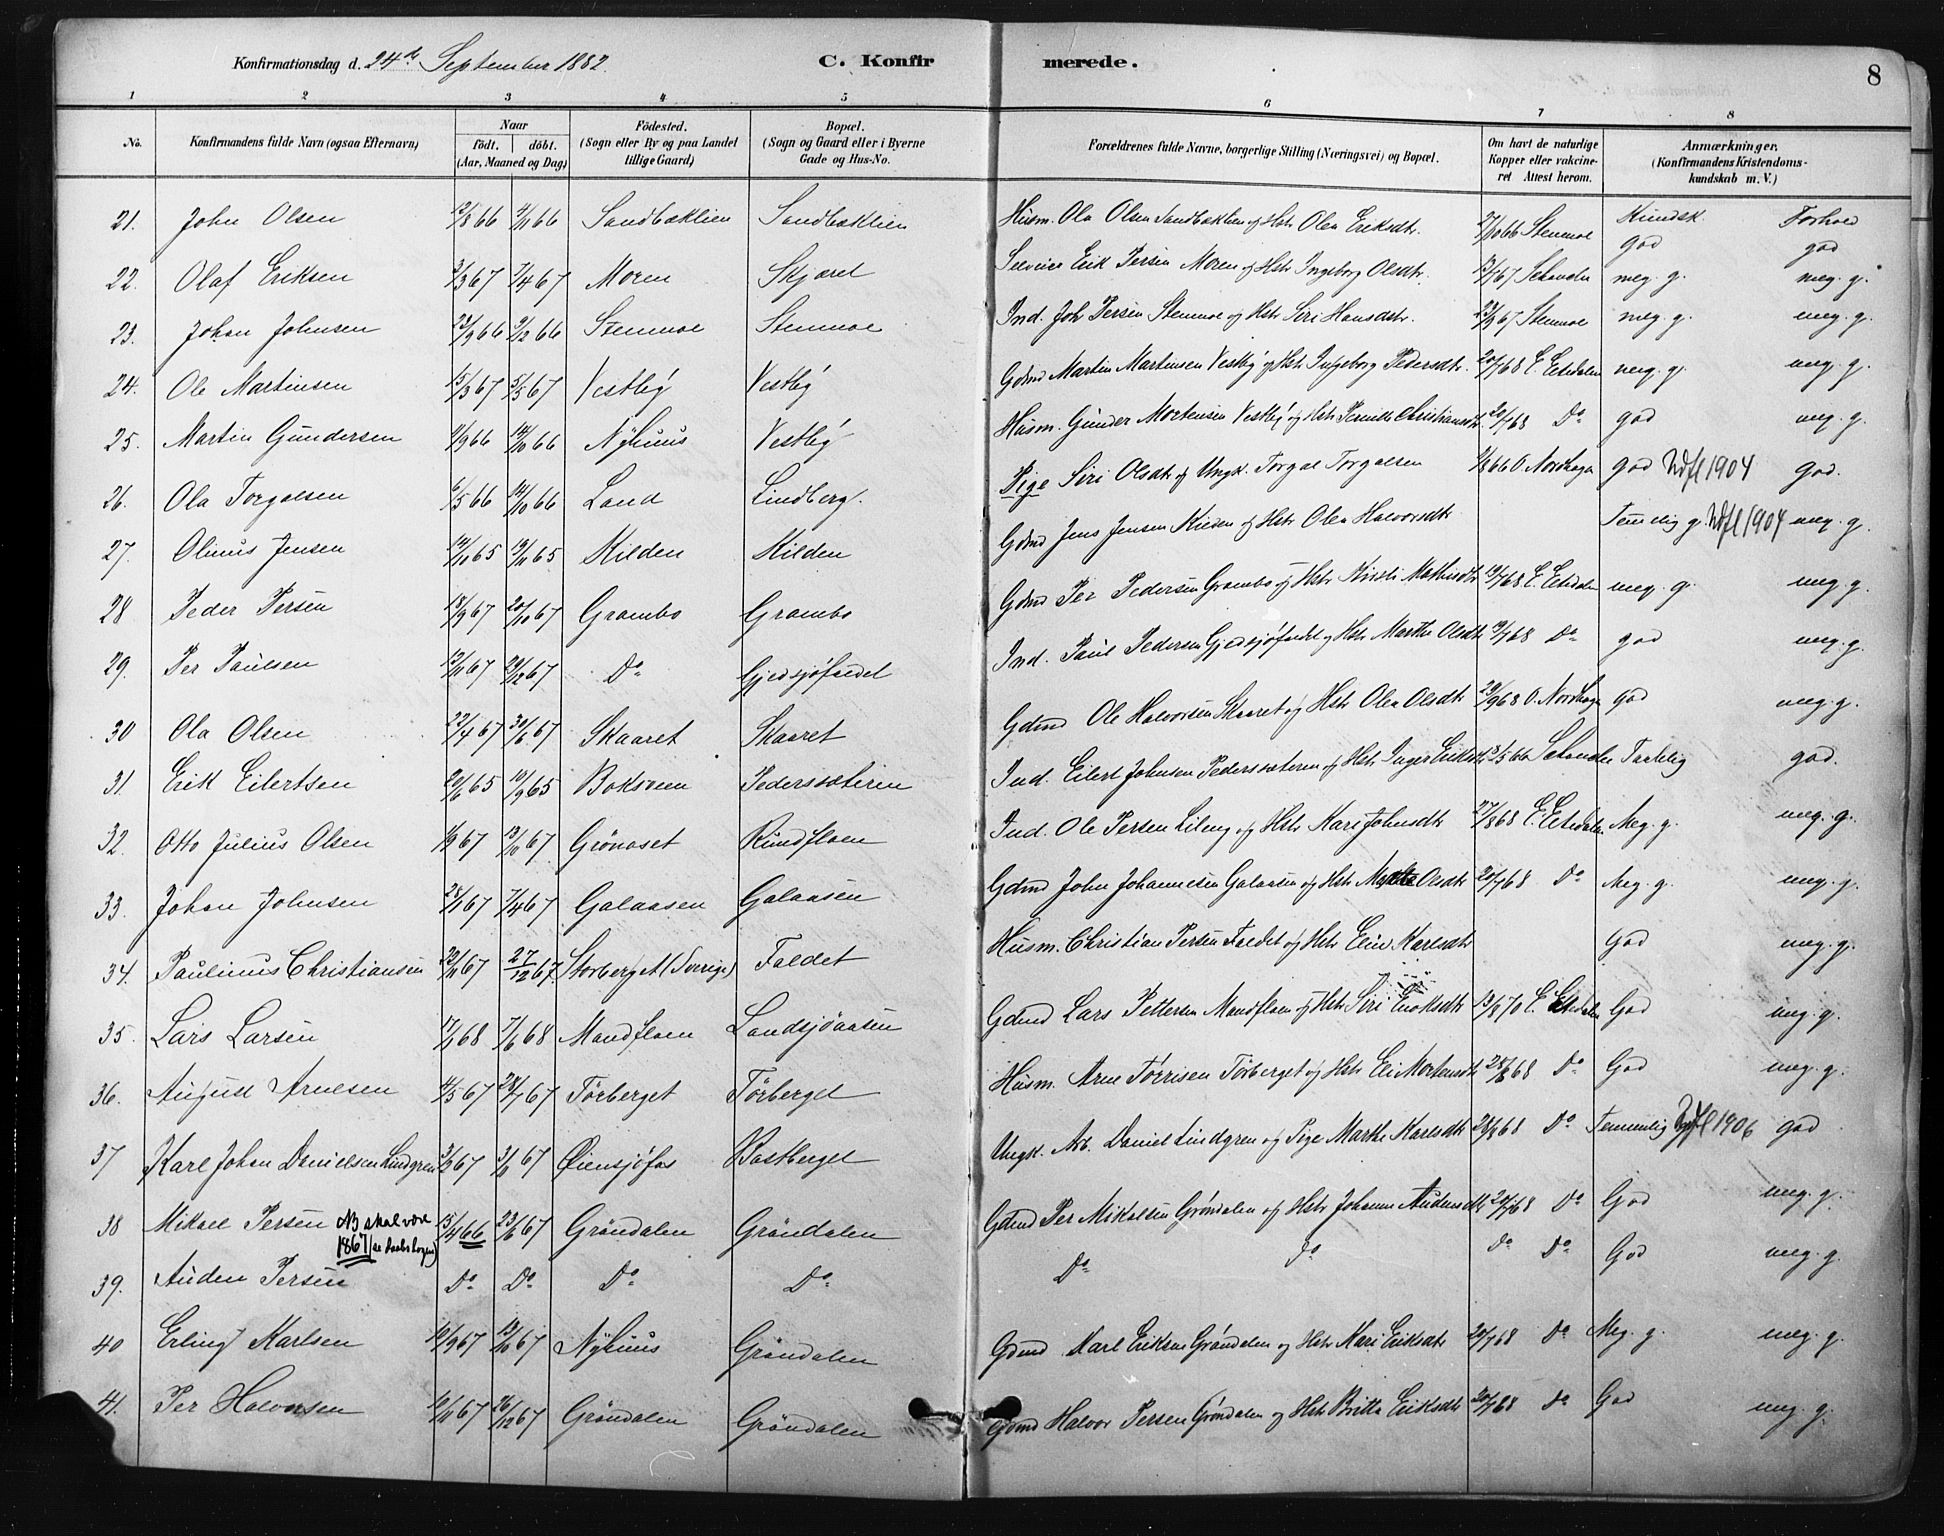 Konfirmationsdag d. 24de September 1882. C. Konfirmerede. 8
1 2 3 4 5 6 7 8
No. Konfirmandens fulde Navn (ogsaa Efternavn) Naar födt. döbt. (Aar, Maaned og Dag) Födested. (Sogn eller By og paa Landet tillige Gaard) Bopæl. (Sogn og Gaard eller i Byerne Gade og Hus-No. Forældrenes fulde Navne, borgerlige Stilling (Næringsvei) og Bopæl. Om havt de naturlige Kopper eller vakcineret Attest herom. Anmærkninger. (Konfirmandens Kristendomskundskab m. V.)
Kundsk. Forhold
21. John Olsen 12/8 66 4/11 66 Sandbæklien Sandbæklien Husm. Ola Olsen Sandbæklien og Hstr Olea Eriksdtr. 27/10 66 Stenmoe god god
22. Olaf Eriksen 2/3 67 7/4 67 Moren Skjæret Selveier Erik Persen Moren og Hstr Ingeborg Olsdtr. meg. g. meg. g.
23. Johan Johnsen 23/9 66 2/12 66 Stenmoe Stenmoe Ind. Joh Persen Stenmoe og Hstr Siri Hansdtr. 23/9 67 Stenmoe meg. g. meg. g.
24. Ole Martinsen 15/3 67 5/5 67 Vestby Vestby Gdmd Martin Martinsen Vestby og Hstr Ingeborg Pedersdtr. 20/7 68 E. Etsdalen meg. g. meg. g.
25. Martin Gundersen 4/9 66 14/10 66 Nyhuus Vestby Husm. Gunder Mortensen Vestby og Hstr Pernille Christiansdtr 20/7 68 Do god meg. g.
26. Ola Torgalsen 6/5 66 14/10 66 Land Lindberg Pige Siri Olsdtr og Ungk. Torgal Torgalsen O. Nordhagen god Udfl 1904 God.
27. Olinus Jensen 14/10 65 19/11 65 Kilden Kilden Gdmd Jens Jensen Kilden og Hstr Olea Halvorsdtr Temelig g. Udfl 1904 meg. g.
28 Peder Persen 18/9 67 20/10 67 Grambo Grambo Gdmd Per Pedersen Grambo og Hstr Kirsti Mathisdtr 19/7 68 E. Etsdalen meg. g. meg. g.
29. Per Paulsen 12/11 67 21/12 67 Do Gjedsjöfaldet Ind. Paul Pedersen Gjedsjöfaldet og Hstr Marthe Olsdtr 19/7 68 Do god meg. g.
30 Ola Olsen 22/4 67 30/6 67 Skaaret Skaaret Gdmd Ole Halvorsen Skaaret og Hstr Olea Olsdtr 29/9 68 O. Nordhagen god meg. g.
31. Erik Eilertsen 20/6 65 10/9 65 Boksveen Pederssæteren Ind. Eilert Johnsen Pederssæteren og Hstr Inger Eriksdtr Taalelig god.
32. Otto Julius Olsen 1/9 67 13/10 67 Grönaset Rundfloen Ind. Ole Persen Lileng og Hstr Kari Johnsdtr 27/8 68 E. Etsdalen Meg. g. meg. g.
33. Johan Johnsen 28/1 67 7/4 67 Galaasen Galaasen Gdmd John Johannesen Galaasen og Hstr Olsdtr 20/7 68 Do Meg. g. meg. g.
34. Paulinus Christiansen 22/11 67 27/12 67. Storberget (Sverige) Faldet Husm. Christian Persen Faldet og Hstr Elin Karlsdtr God meg. g.
35. Lars Larsen 17/1 68 7/6 68 Mandfloen Landsjöaasen Gdmd Lars Pettersen Mandfloen og Hstr Siri Enoksdtr 13/8 70 E. Etsdalen God meg. g.
36. August Arnesen 4/5 67 28/7 67 Törberget Törberget Husm. Arne Törrisen Törberget og Hstr Eli Mortensdtr 28/8 68 Do God meg. g.
37 Karl Johan Danielsen Lindgren 3/9 67 3/11 67 Öiensjöfos Bastberget Ungk. Arb. Daniel Lindgren og Pige Marthe Karlsdtr 28/8 68 Do Temmelig Udfl 1906 god
38 Mikael Persen NB skal være 1867 (se daabsbogen) 15/4 66 23/6 67 Gröndalen Gröndalen Gdmd Per Mikalsen Gröndalen og Hstr Johanne Audensdtr 20/7 68 Do God meg. g.
39. Auden Persen Do Do Do Do Do Do Do Do God meg. g.
40 Erling Karlsen 10/9 67 13/10 67 Nyhuus Gröndalen Gdmd Karl Eriksen Gröndalen og Hstr Kari Eriksdtr 20/7 68 Do Meg. g. meg. g.
41. Per Halvorsen 10/11 67 26/12 67 Gröndalen Gröndalen Gdmd Halvor Persen Gröndalen og Hstr Britta Eriksdtr 20/7 68 Do God meg. g.